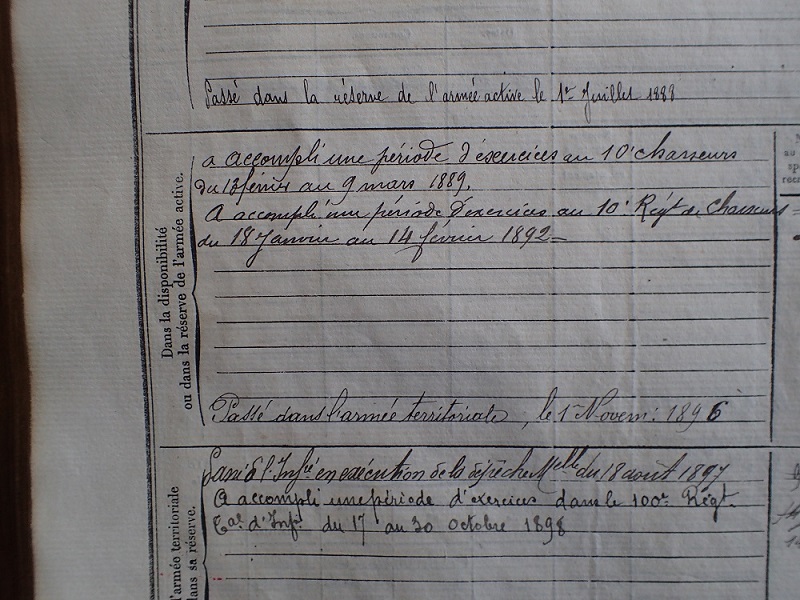 Passé dans la réserve de l'armée active le 1er Juillet 1888
Dans la disponibilité
ou dans la réserve de l'armée active.
a accompli une période d'éxercices au 10e chasseurs
du 13 février au 9 mars 1889.
A accompli une période d'exercices au 10e Régt de Chasseurs
du 18 Janvier au 14 février 1892
Passé dans l'armée territoriale, le 1er Novem: 1896
l'armée territoriale
dans sa réserve.
Passé à l'Infie en exécution de la dépêche Melle du 18 août 1897
A accompli une période d'exercices dans le 100e Régt.
Tal d'Infie du 17 au 30 octobre 1898